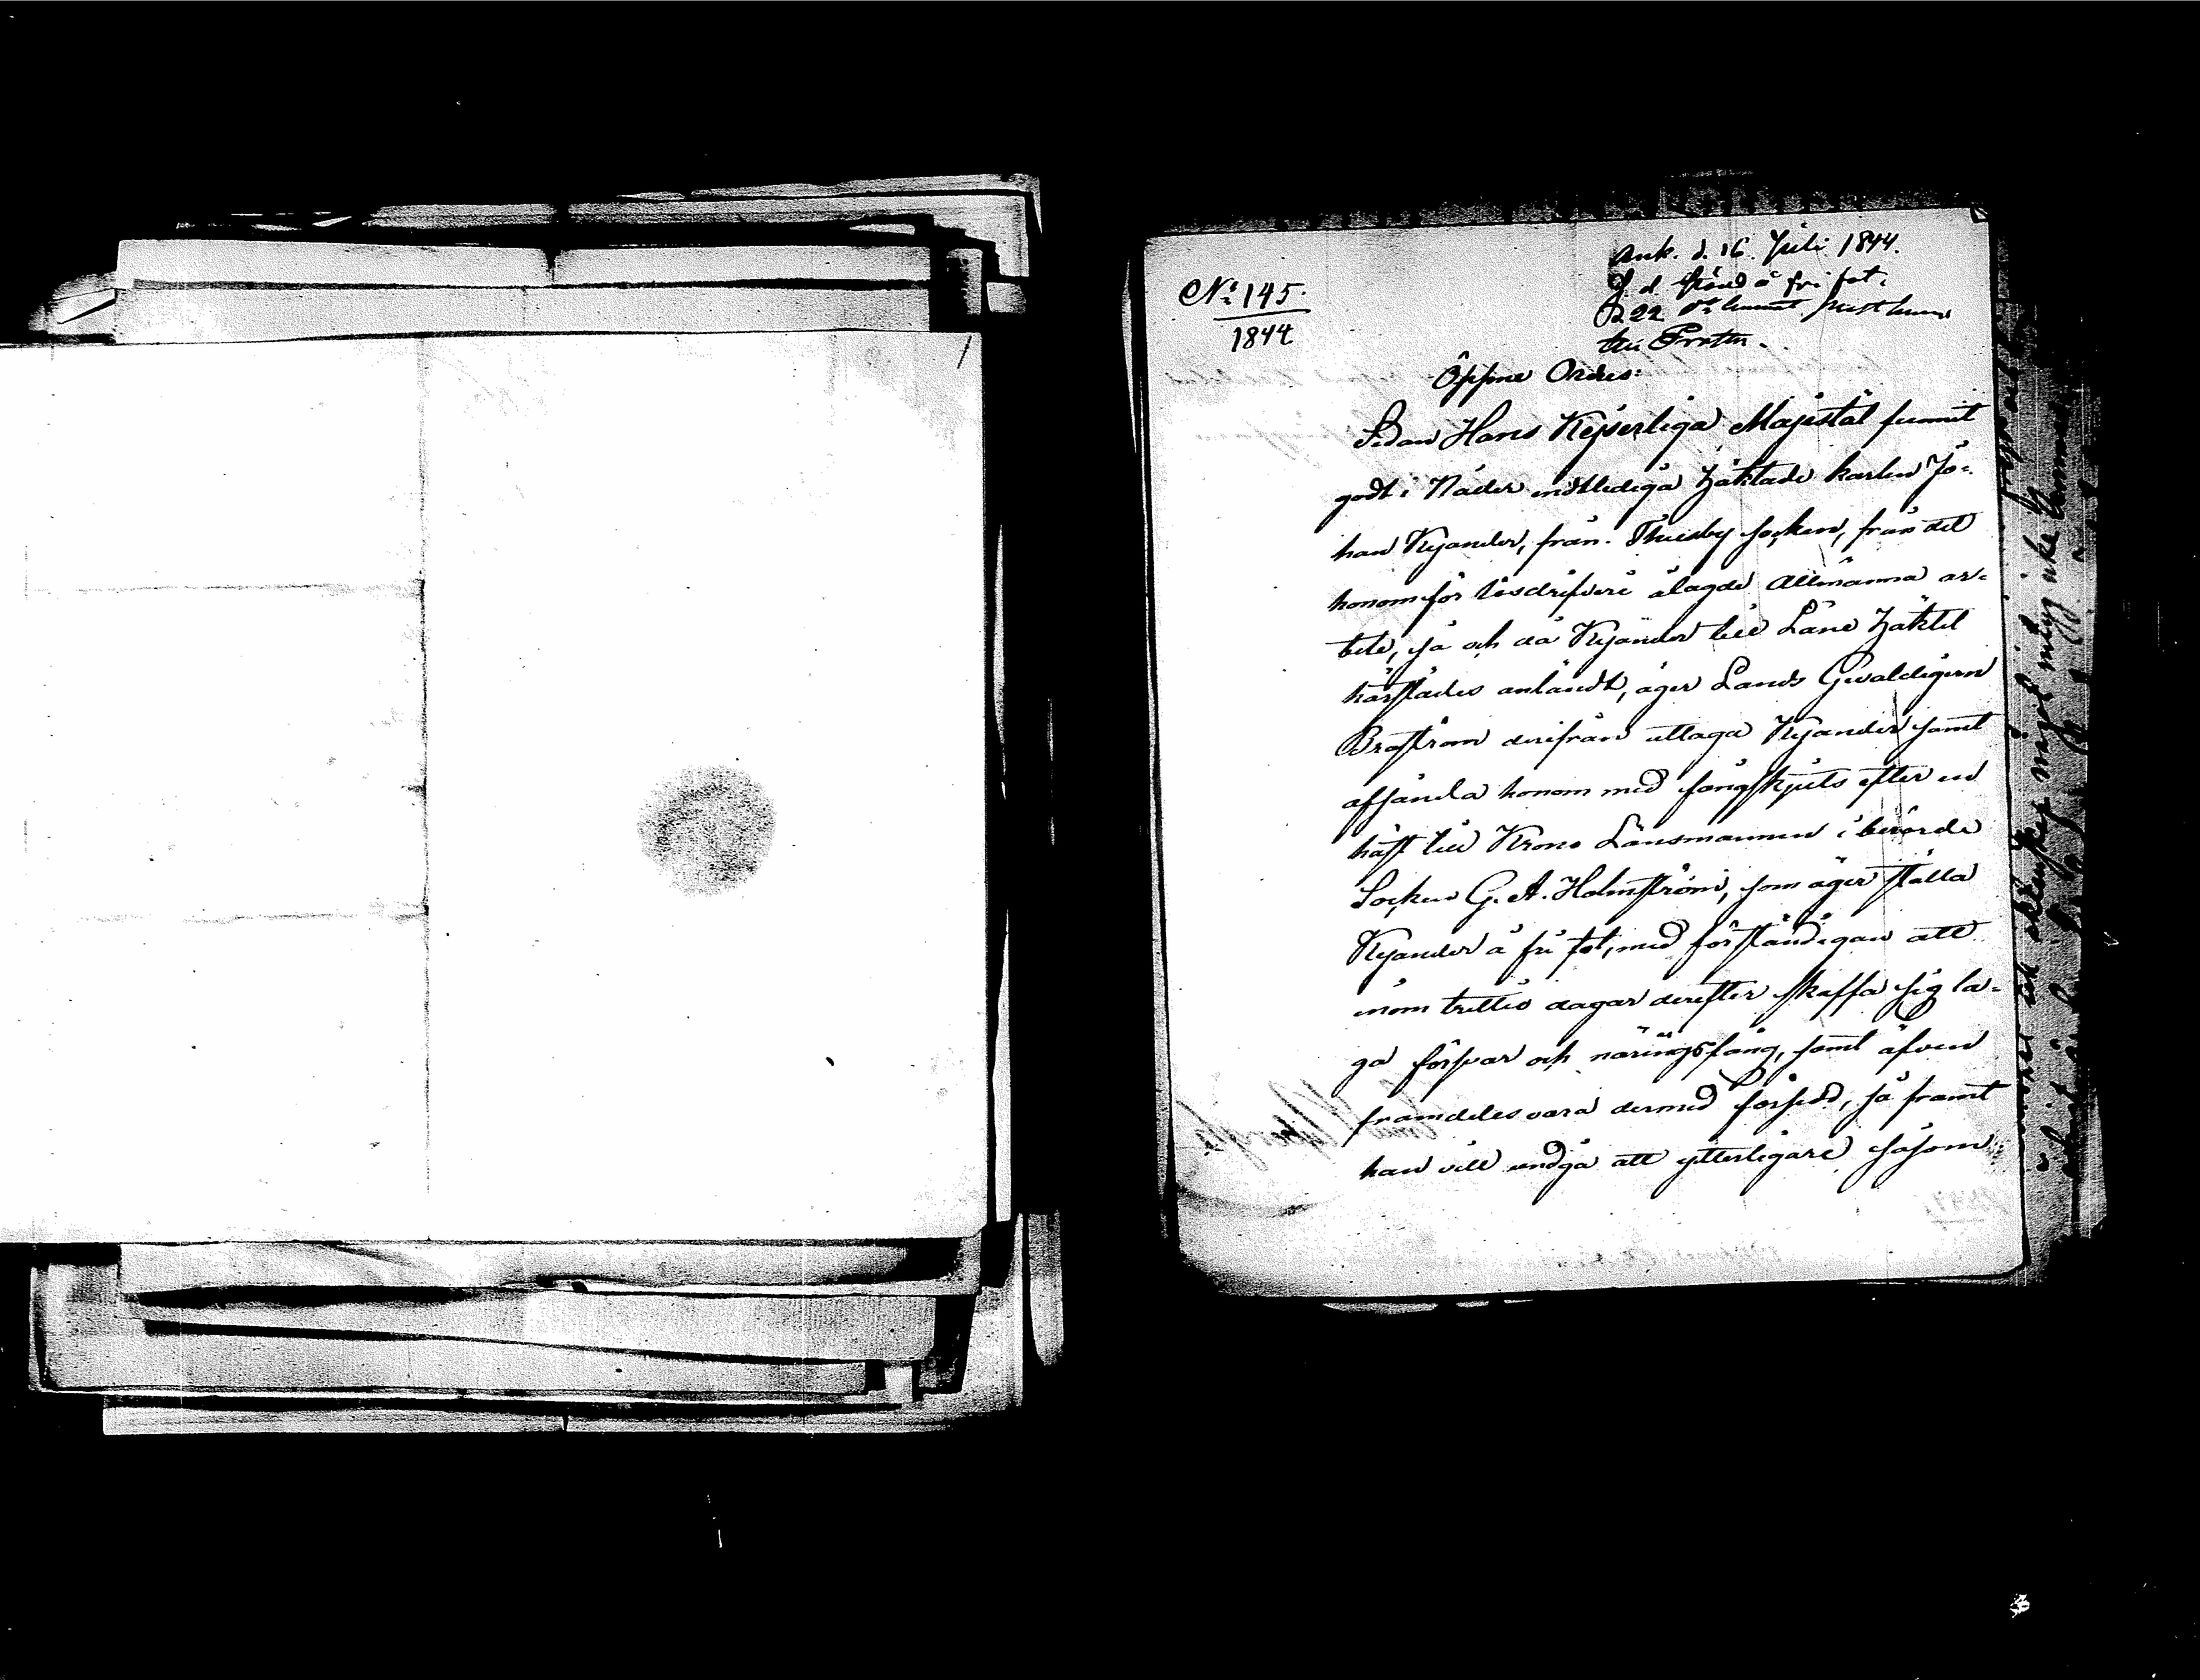 Ank. d. 16 Juli 1844.
S. d. ställd å fri fot.
D 22
N:o 145.
1844
Öppne Ordres:
Sedan Hans Kejserliga Majestät funnit
godt i Nåder entlediga häktade karlen Jo-
han Kyander, från Thusby socken, från det
honom för lösdrifveri ålagde allmänna ar-
bete, så och då Kyander till Läne häktet
härstädes anländt, äger Lands Gevaldigern
Broström derifrån uttaga Kyander samt
afsända honom med fångskjuts efter en
häst till Krono Länsmannen i berörde
Socken G. A. Holmström, som äger ställa
Kyander å fri fot, med förständigan att
inom trettio dagar derefter skaffa sig la-
ga försvar och näringsfång, samt äfven
framdeles vara dermed försedd, så framt
han vill undgå att ytterligare såsom